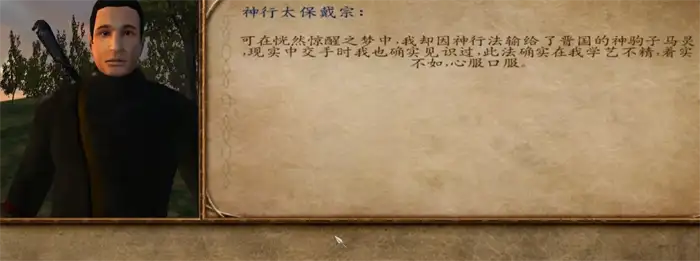 神行太保戴宗：
可在恍然惊醒之梦中,我却因神行法输给了晋国的神驹子马灵
,现实中交手时我也确实见识过,此法确实在我学艺不精,着实
不如,心服口服。